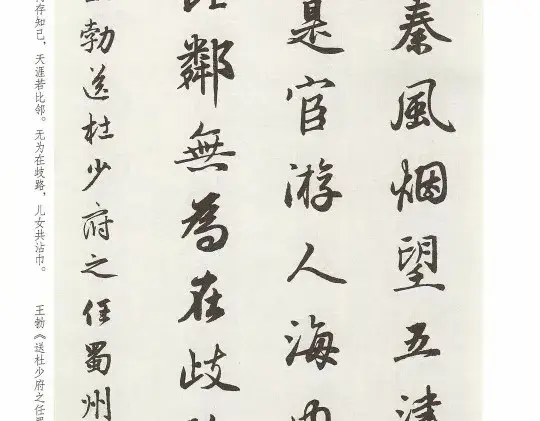 秦風烟望五津
是宦游人海內
比鄰無為在歧路
勃送杜少府之任蜀州
存知己，天涯若比邻。无为在歧路，儿女共沾巾。
王勃《送杜少府之任